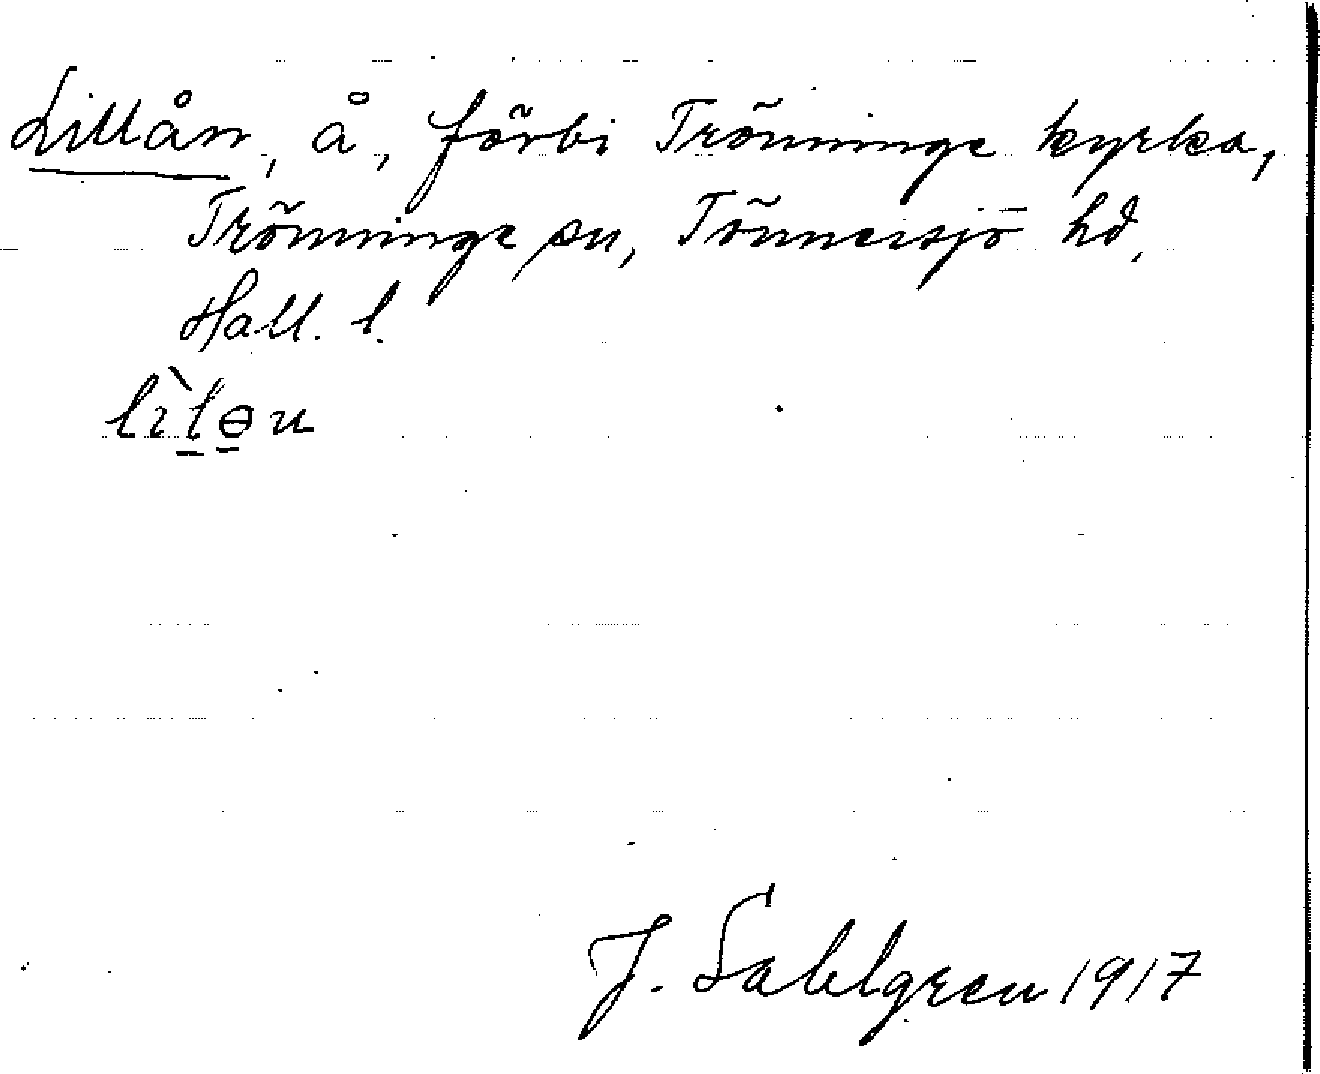 Lillån, å, förbi Trönninge kyrka,
Trönninge sn, Tönnersjö hd,
Hall. l.
lìlɵn
J. Sahlgren 1917